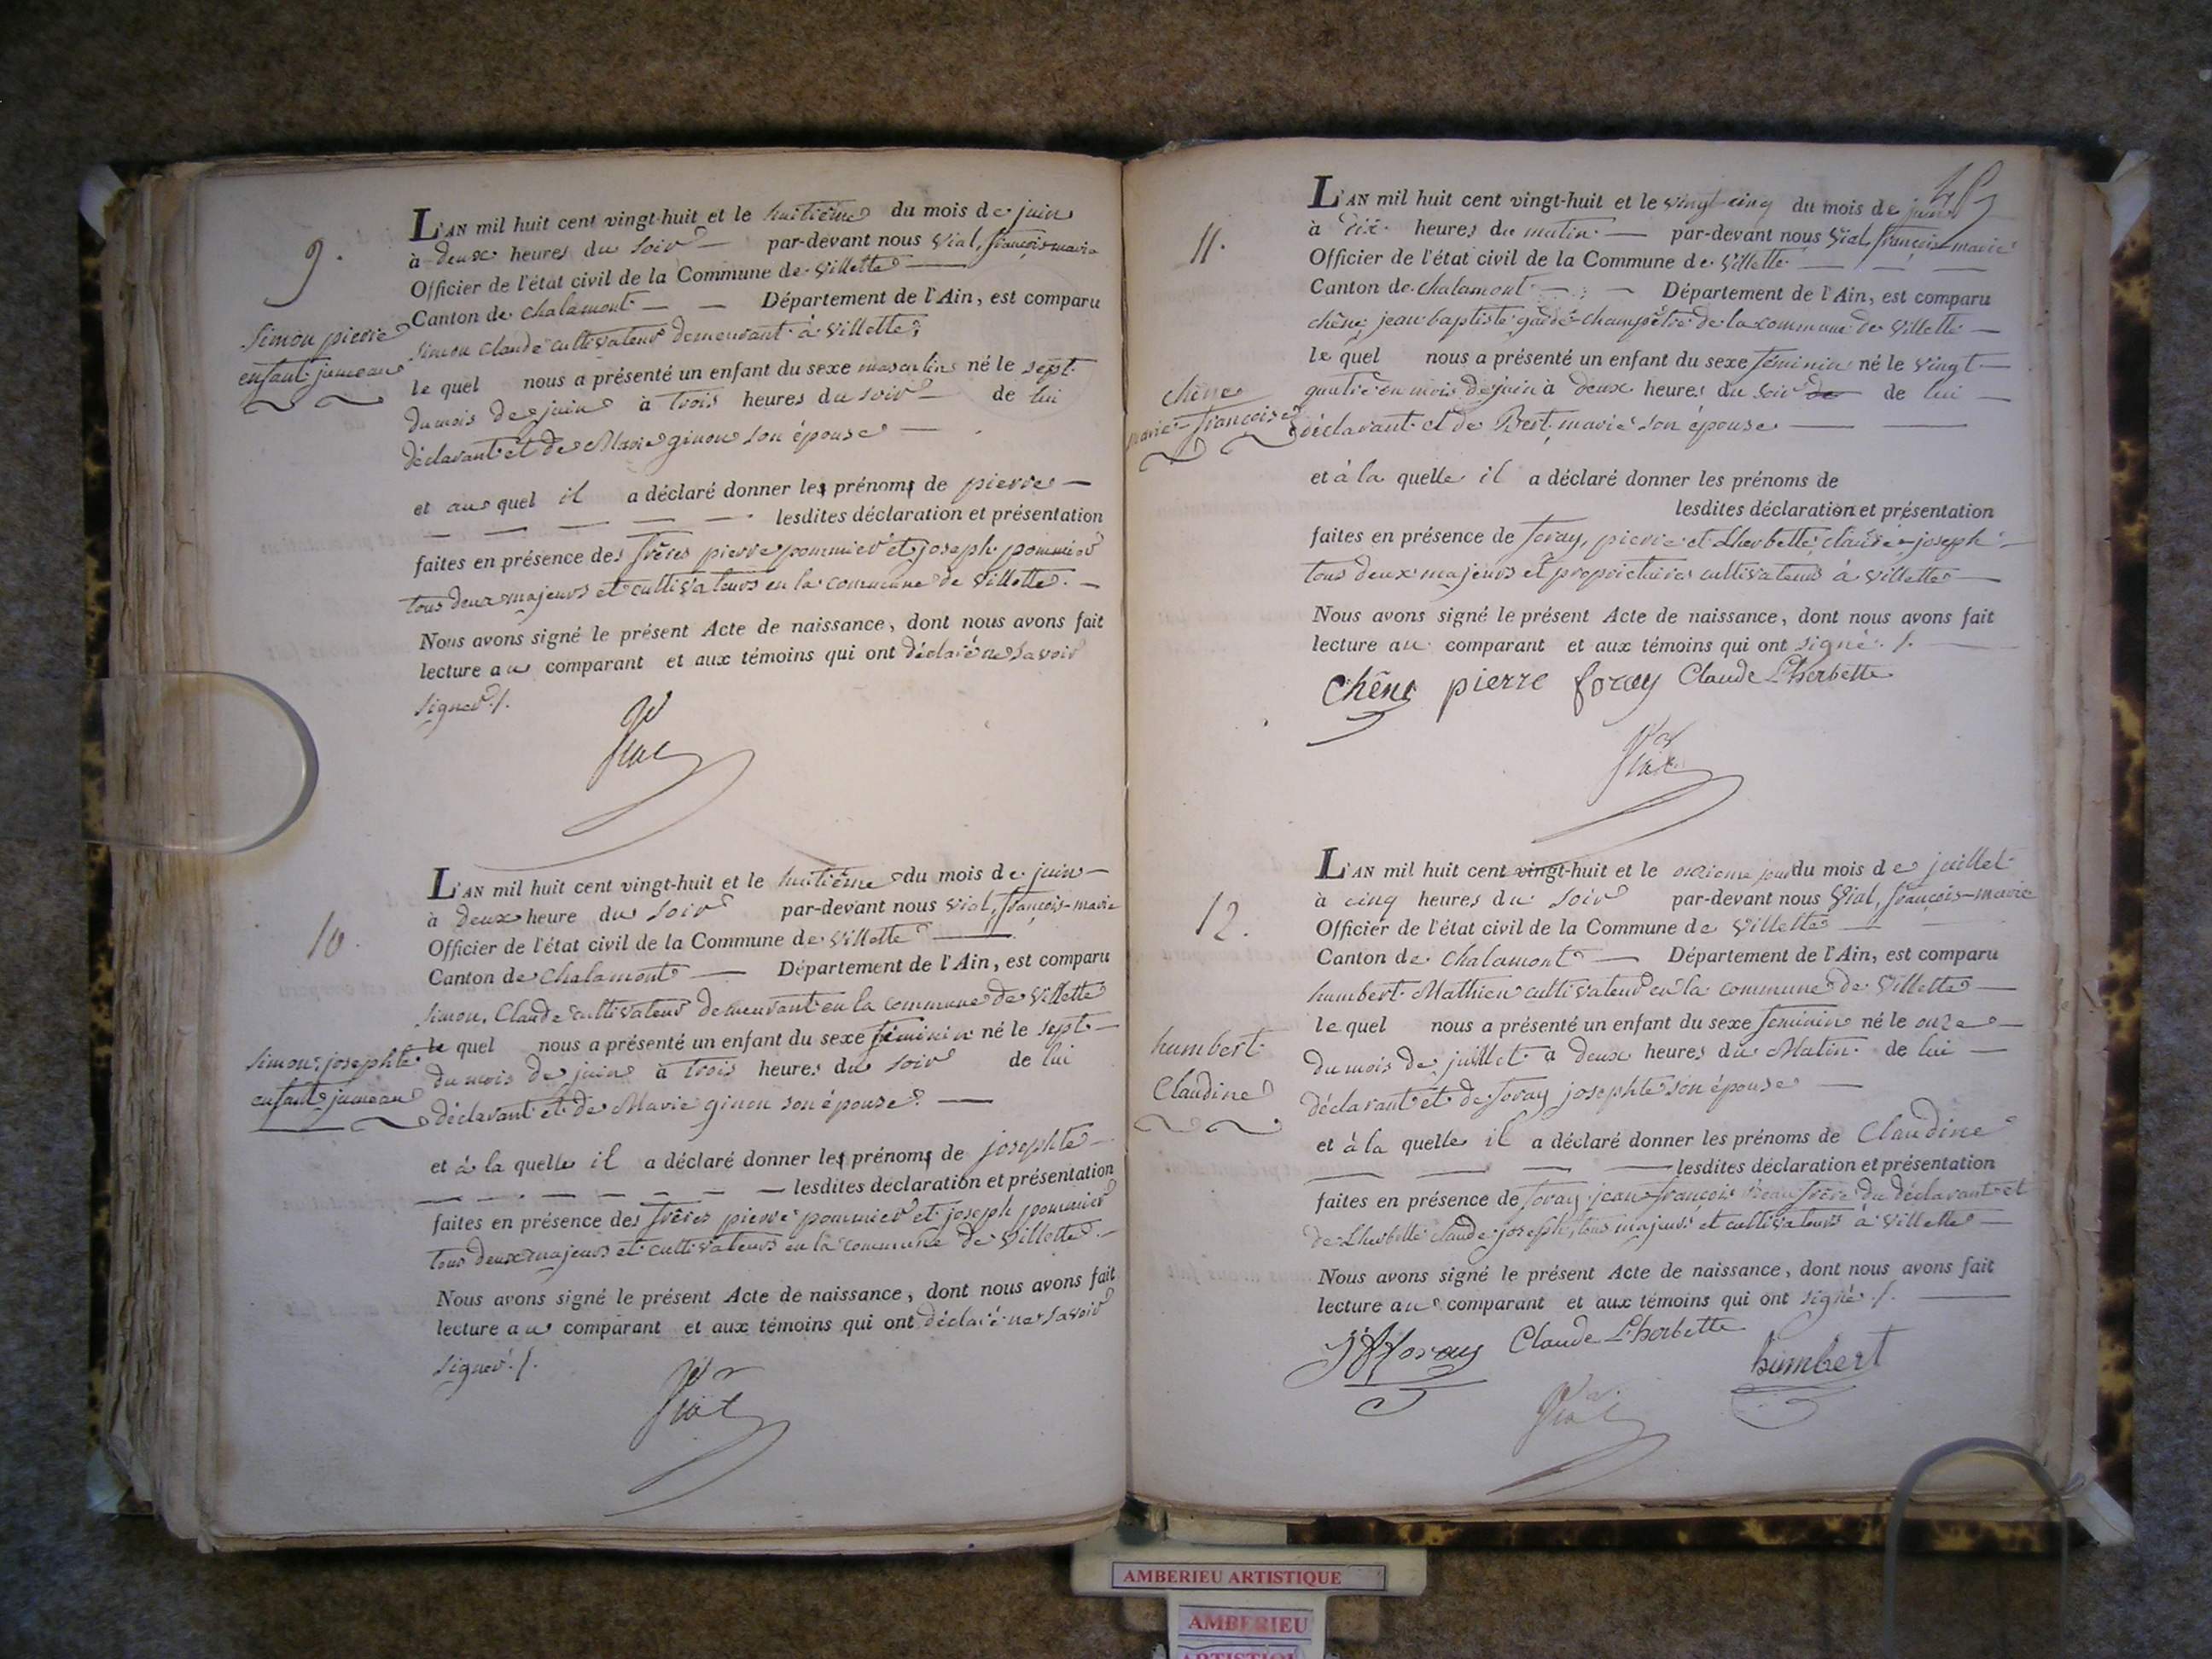 9.
Simon pierre
enfant jumeau
L'AN mil huit cent vingt-huit et le huitième du mois de juin
à deux heures du soir — par-devant nous Vial, françois-marie
Officier de l'état civil de la Commune de Villette —
Canton de chalamont — — Département de l'Ain, est comparu
Simon Claude cultivateur demeurant à Villette,
le quel nous a présenté un enfant du sexe masculin né le sept
du mois de juin à trois heures du soir — de lui
déclarant et de Marie ginon son épouse —
et au quel il a déclaré donner les prénoms de pierre —
— — — — — lesdites déclaration et présentation
faites en présence des frères pierre pommier et joseph pommier
tous deux majeurs et cultivateurs en la commune de Villette. —
Nous avons signé le présent Acte de naissance, dont nous avons fait
lecture au comparant et aux témoins qui ont déclaré ne savoir
signer ./.
Vial
10.
Simon josephte
enfant jumeau
L'AN mil huit cent vingt-huit et le huitième du mois de juin —
à deux heure du soir par-devant nous Vial, françois-marie
Officier de l'état civil de la Commune de Villette —
Canton de Chalamont — Département de l'Ain, est comparu
Simon, Claude cultivateur demeurant en la commune de Villette
le quel nous a présenté un enfant du sexe féminin né le sept —
du mois de juin à trois heures du soir de lui
déclarant et de Marie ginon son épouse. —
et à la quelle il a déclaré donner les prénoms de josephte —
— — — — — — — lesdites déclaration et présentation
faites en présence des frères pierre pommier et joseph pommier
tous deux majeurs et cultivateurs en la commune de Villette. —
Nous avons signé le présent Acte de naissance, dont nous avons fait
lecture au comparant et aux témoins qui ont déclaré ne savoir
signer ./.
Vial
11.
chêne
marie-françoise
L'AN mil huit cent vingt-huit et le vingt-cinq du mois de juin
à dix heures du matin — par-devant nous Vial, françois-marie
Officier de l'état civil de la Commune de Villette — — —
Canton de chalamont — — Département de l'Ain, est comparu
chêne, jean baptiste garde-champêtre de la commune de Villette —
le quel nous a présenté un enfant du sexe féminin né le vingt —
quatre du mois de juin à deux heures du soir de de lui —
déclarant et de Bert, marie son épouse — —
et à la quelle il a déclaré donner les prénoms de
lesdites déclaration et présentation
faites en présence de foray, pierre et Lherbette claude-joseph —
tous deux majeurs et propriétaires cultivateurs à Villette —
Nous avons signé le présent Acte de naissance, dont nous avons fait
lecture au comparant et aux témoins qui ont signé ./. —
Chêne pierre foray Claude L'herbette
Vial
12.
humbert
Claudine
L'AN mil huit cent vingt-huit et le onzième jour du mois de juillet
à cinq heures du soir par-devant nous Vial, françois-marie
Officier de l'état civil de la Commune de Villette —
Canton de Chalamont — Département de l'Ain, est comparu
humbert Mathieu cultivateur en la commune de Villette —
le quel nous a présenté un enfant du sexe féminin né le onze —
du mois de juillet à deux heures du Matin de lui —
déclarant et de foray josephte son épouse —
et à la quelle il a déclaré donner les prénoms de Claudine
— — — — lesdites déclaration et présentation
faites en présence de foray jean françois beau frère du déclarant et
de Lherbette claude joseph, tous majeurs et cultivateurs à Villette —
Nous avons signé le présent Acte de naissance, dont nous avons fait
lecture au comparant et aux témoins qui ont signé ./. —
foray Claude L'herbette humbert
Vial
AMBERIEU ARTISTIQUE
AMBERIEU
ARTISTIQUE